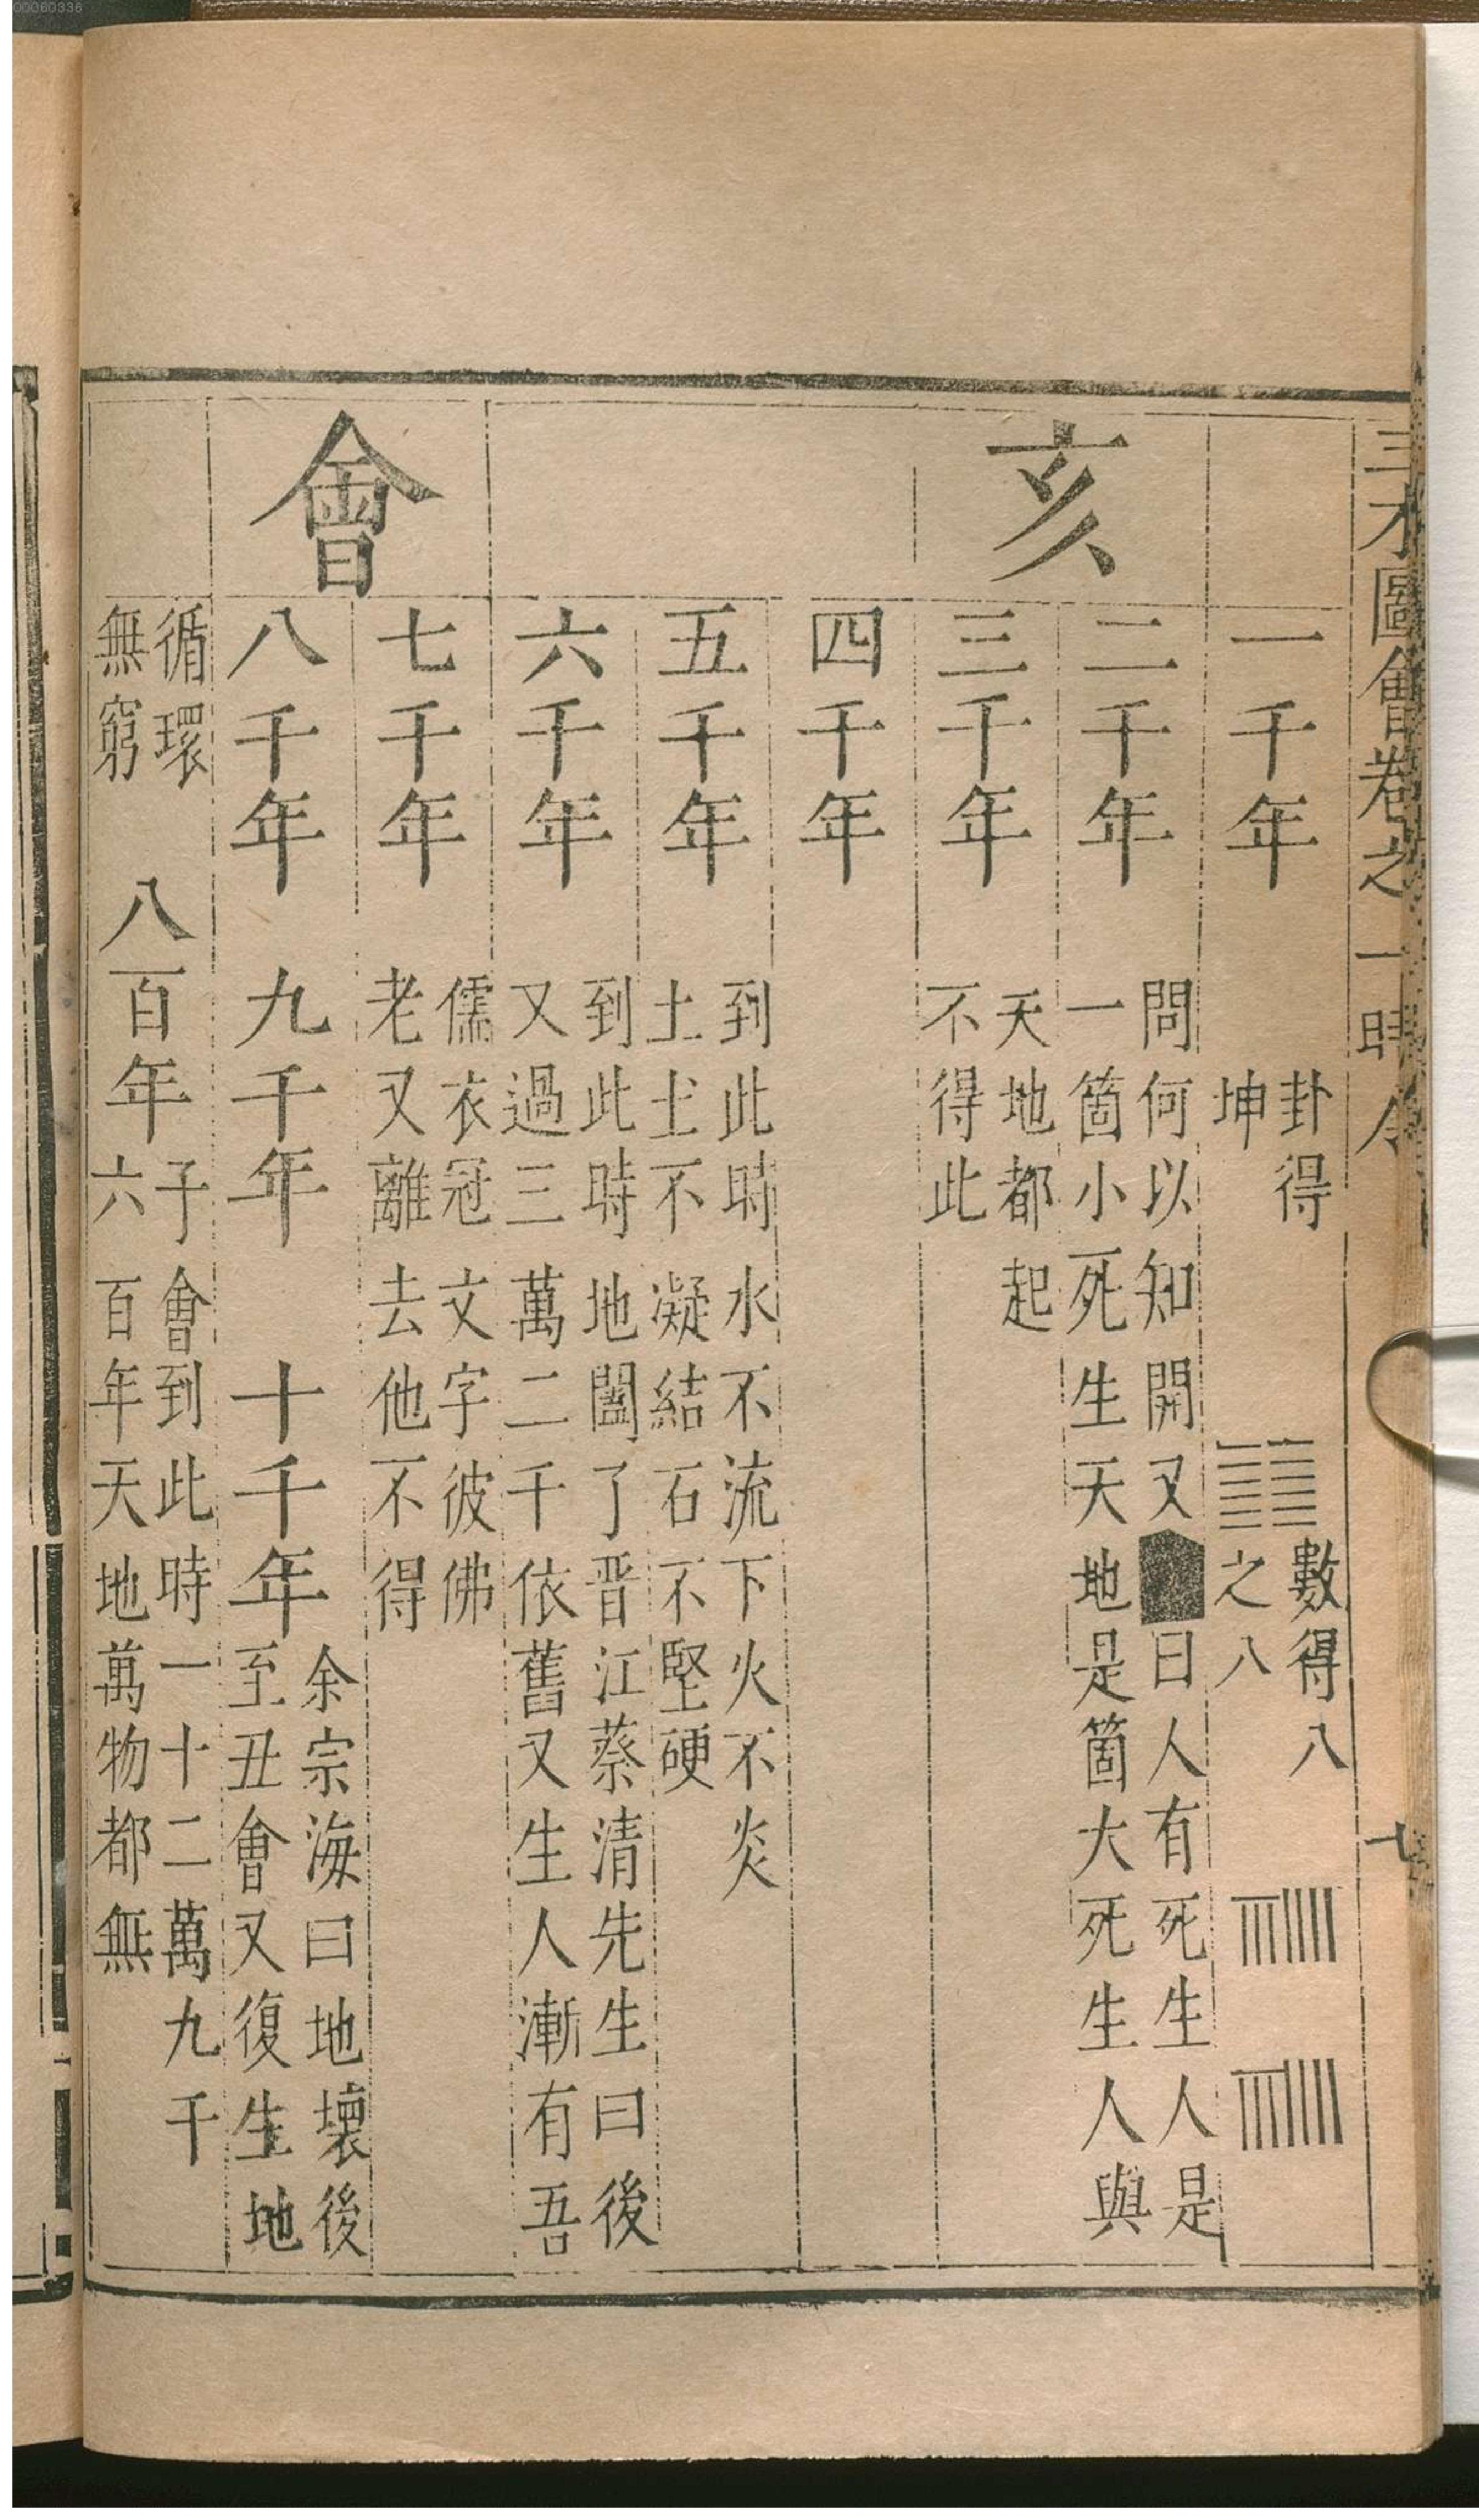 三才圖會卷之一時令
七
亥
會
一千年
卦得
坤
數得八
之八
二千年
問何以知開又曰人有死生人是
一箇小死生天地是箇大死生人與
三千年
天地都起
不得此
四千年
五千年
到此時水不流下火不炎
土土不凝結石不堅硬
六千年
到此時地闔了晋江蔡清先生曰後
又過三萬二千依舊又生人漸有吾
七千年
儒衣冠文字彼佛
老又離去他不得
八千年
九千年
十千年
余宗海曰地壞後
至丑會又復生地
循環
無窮
八百年
子會到此時一十二萬九千
六百年天地萬物都無
00060336